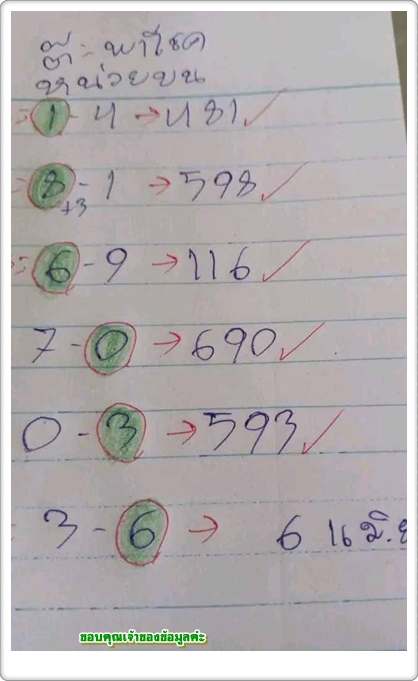 ต๊ะ พาโชค
หน่วยบน
1 - 4 → 481 ✓
8 - 1 → 598 ✓
+3
6 - 9 → 116 ✓
7 - 0 → 690 ✓
0 - 3 → 593 ✓
3 - 6 → 6 16 มิ.ย
ขอบคุณเจ้าของข้อมูลค่ะ